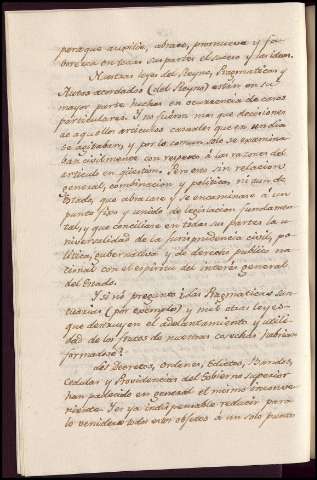 para que auxilie, abrace, promueva y fa-
borezca en todas sus partes el suceso y las ideas.
Nuestras leyes del Reyno, Pragmaticas y
Autos acordados (del Reyno) estan en su
mayor parte hechas en ocurrencia de casos
particulares. Y no fueron mas que decisiones
de aquellos articulos casuales que en su dia
se agitaban, y por lo comun solo se examina-
ban civilmente con respecto á las razones del
articulo en qüestion. Pero eso sin relacion
general, combinacion y politica, ni aun de
Estado, que abrazase y se encaminase á un
punto fixo y unido de legislacion fundamen-
tal, y que conciliase en todas sus partes la u-
niversalidad de la jurisprudencia civil, po-
litica, gubernativa y de derecho publico na-
cional con el espiritu del interés general
del Estado.
Y si nó pregunto ¿Las Pragmaticas sun-
tuarias (por exemplo) y mil otras leyes
que en el adelantamiento y utili-
dad de los frutos de nuestras cosechas habrian
formadose?
Los Decretos, Ordenes, Edictos, Bandos,
Cedulas y Providencias del Gobierno superior
han padecido en general el mismo inconve-
niente. Y es ya indispensable reducir para
lo venidero todos estos objetos á un solo punto